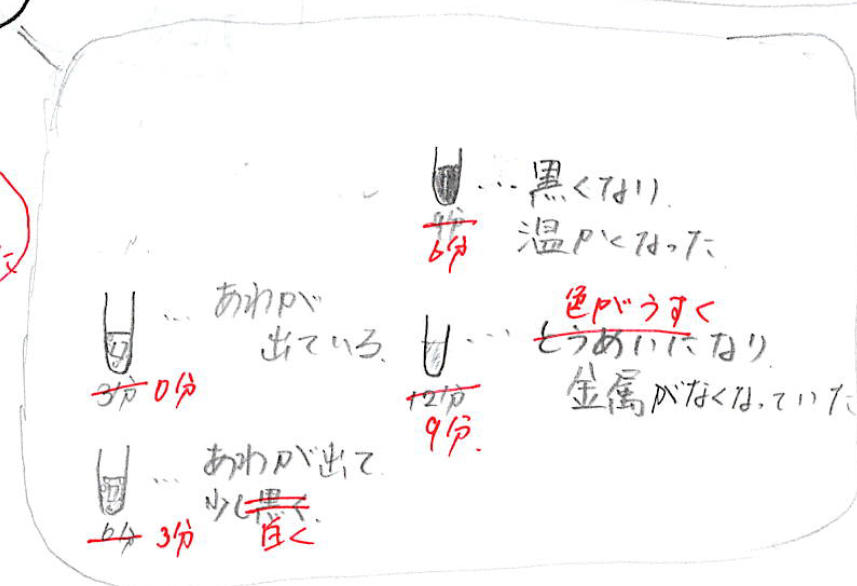 …あわが
出ている.
3分 0分
…あわが出て
少し黒く.
白く
6分 3分
…黒くなり.
9分
6分
温かくなった
色がうすく
…とうめいになり
金属がなくなっていた
12分
9分.